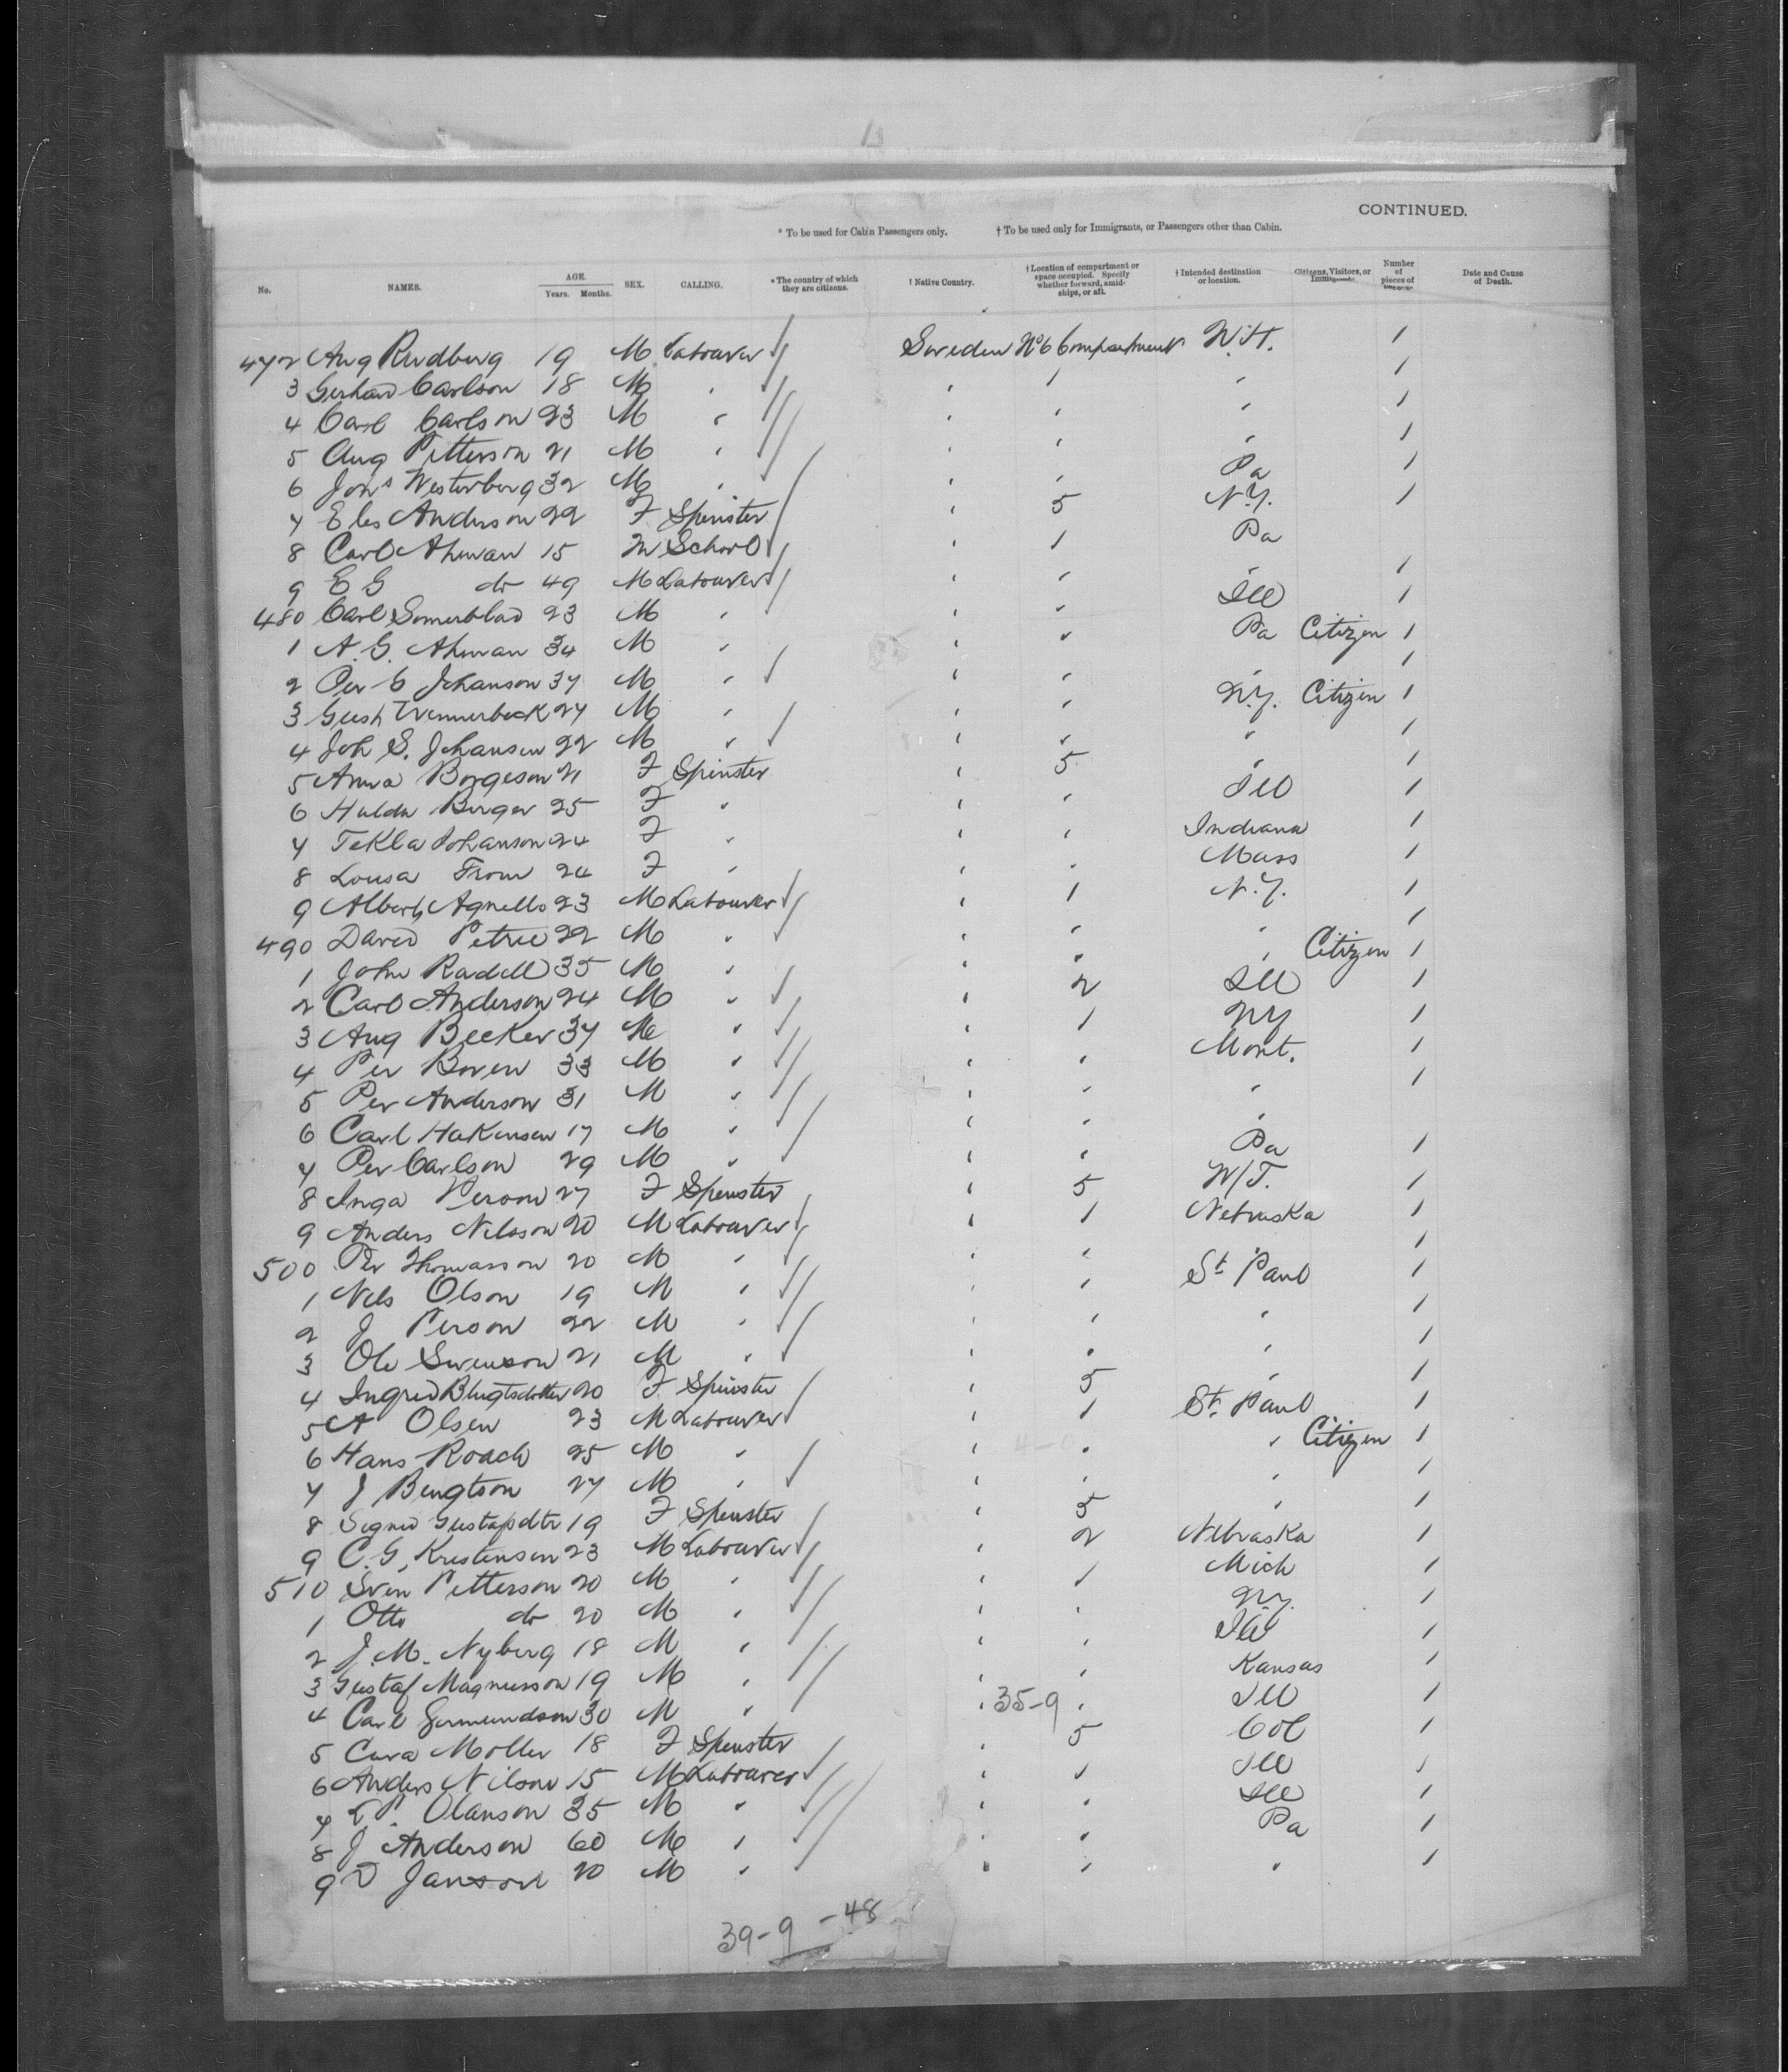 CONTINUED.
* To be used for Cabin Passengers only. † To be used only for Immigrants, or Passengers other than Cabin.
No. NAMES. AGE. Years. Months. SEX. CALLING. * The country of which they are citizens. † Native Country. † Location of compartment or space occupied. Specify whether forward, amidships, or aft. † Intended destination or location. Citizens, Visitors, or Immigrants Number of pieces of Date and Cause of Death.
472 Aug Rudberg 19 M Labourer Sweden No 6 Compartment 1
3 Gerhard Carlson 18 M " " 1 " 1
4 Carl Carlson 23 M " " " " 1
5 Aug Petterson 21 M " " " " 1
6 Jons Westerberg 32 M " " " Pa 1
7 Eles Anderson 22 F Spinster " 5 N.Y. 1
8 Carl Ahman 15 M School " 1 Pa
9 E G do 49 M Labourer " " " 1
480 Carl Somerblad 23 M " " " Ill 1
1 A. G. Ahman 34 M " " " Pa Citizen 1
2 Per C Johanson 37 M " " " " 1
3 Gust Wennerbeck 27 M " " " N.Y. Citizen 1
4 Joh S. Johansen 22 M " " " " 1
5 Anna Borgeson 21 F Spinster " 5 " 1
6 Hulda Berger 25 F " " " Ill 1
7 Tekla Johanson 24 F " " " Indiana 1
8 Lousa From 24 F " " " Mass 1
9 Albert Agnello 23 M Labourer " 1 N.Y. 1
490 David Petree 22 M " " " " 1
1 John Radell 35 M " " " " Citizen 1
2 Carl Anderson 24 M " " 2 Ill 1
3 Aug Becker 37 M " " 1 NY 1
4 Per Boren 33 M " " " Mont. 1
5 Per Anderson 31 M " " " " 1
6 Carl Hakensen 17 M " " " "
7 Per Carlson 29 M " " " Pa 1
8 Inga Person 27 F Spinster " 5 W/T. 1
9 Anders Nilsson 20 M Labourer " 1 Nebraska 1
500 Per Thomasson 20 M " " " " 1
1 Nels Olson 19 M " " " St Paul 1
2 J Person 22 M " " " " 1
3 Ole Swenson 21 M " " " " 1
4 Ingred 20 F Spinster " 5 " 1
5 A Olsen 23 M Labourer " 1 St. Paul 1
6 Hans Roach 25 M " " " " Citizen 1
7 J Bengtson 27 M " " " " 1
8 Signed Gustafdtr 19 F Spinster " 5 " 1
9 C. G. Kristensen 23 M Labourer " 2 Nebraska 1
510 Sven Petterson 20 M " " 1 Mich 1
1 Otto do 20 M " " " N.Y. 1
2 J. M. Nyberg 18 M " " " Ill 1
3 Gustaf Magnusson 19 M " " " Kansas 1
4 Carl Germundson 30 M " " 35-9 " Ill 1
5 Cara Moller 18 F Spinster " 5 Col 1
6 Anders Nilson 15 M Labourer " 1 Ill 1
7 P. Olanson 35 M " " " Ill 1
8 J Anderson 60 M " " " Pa 1
9 Janson 20 M " " " " 1
39-9 -48